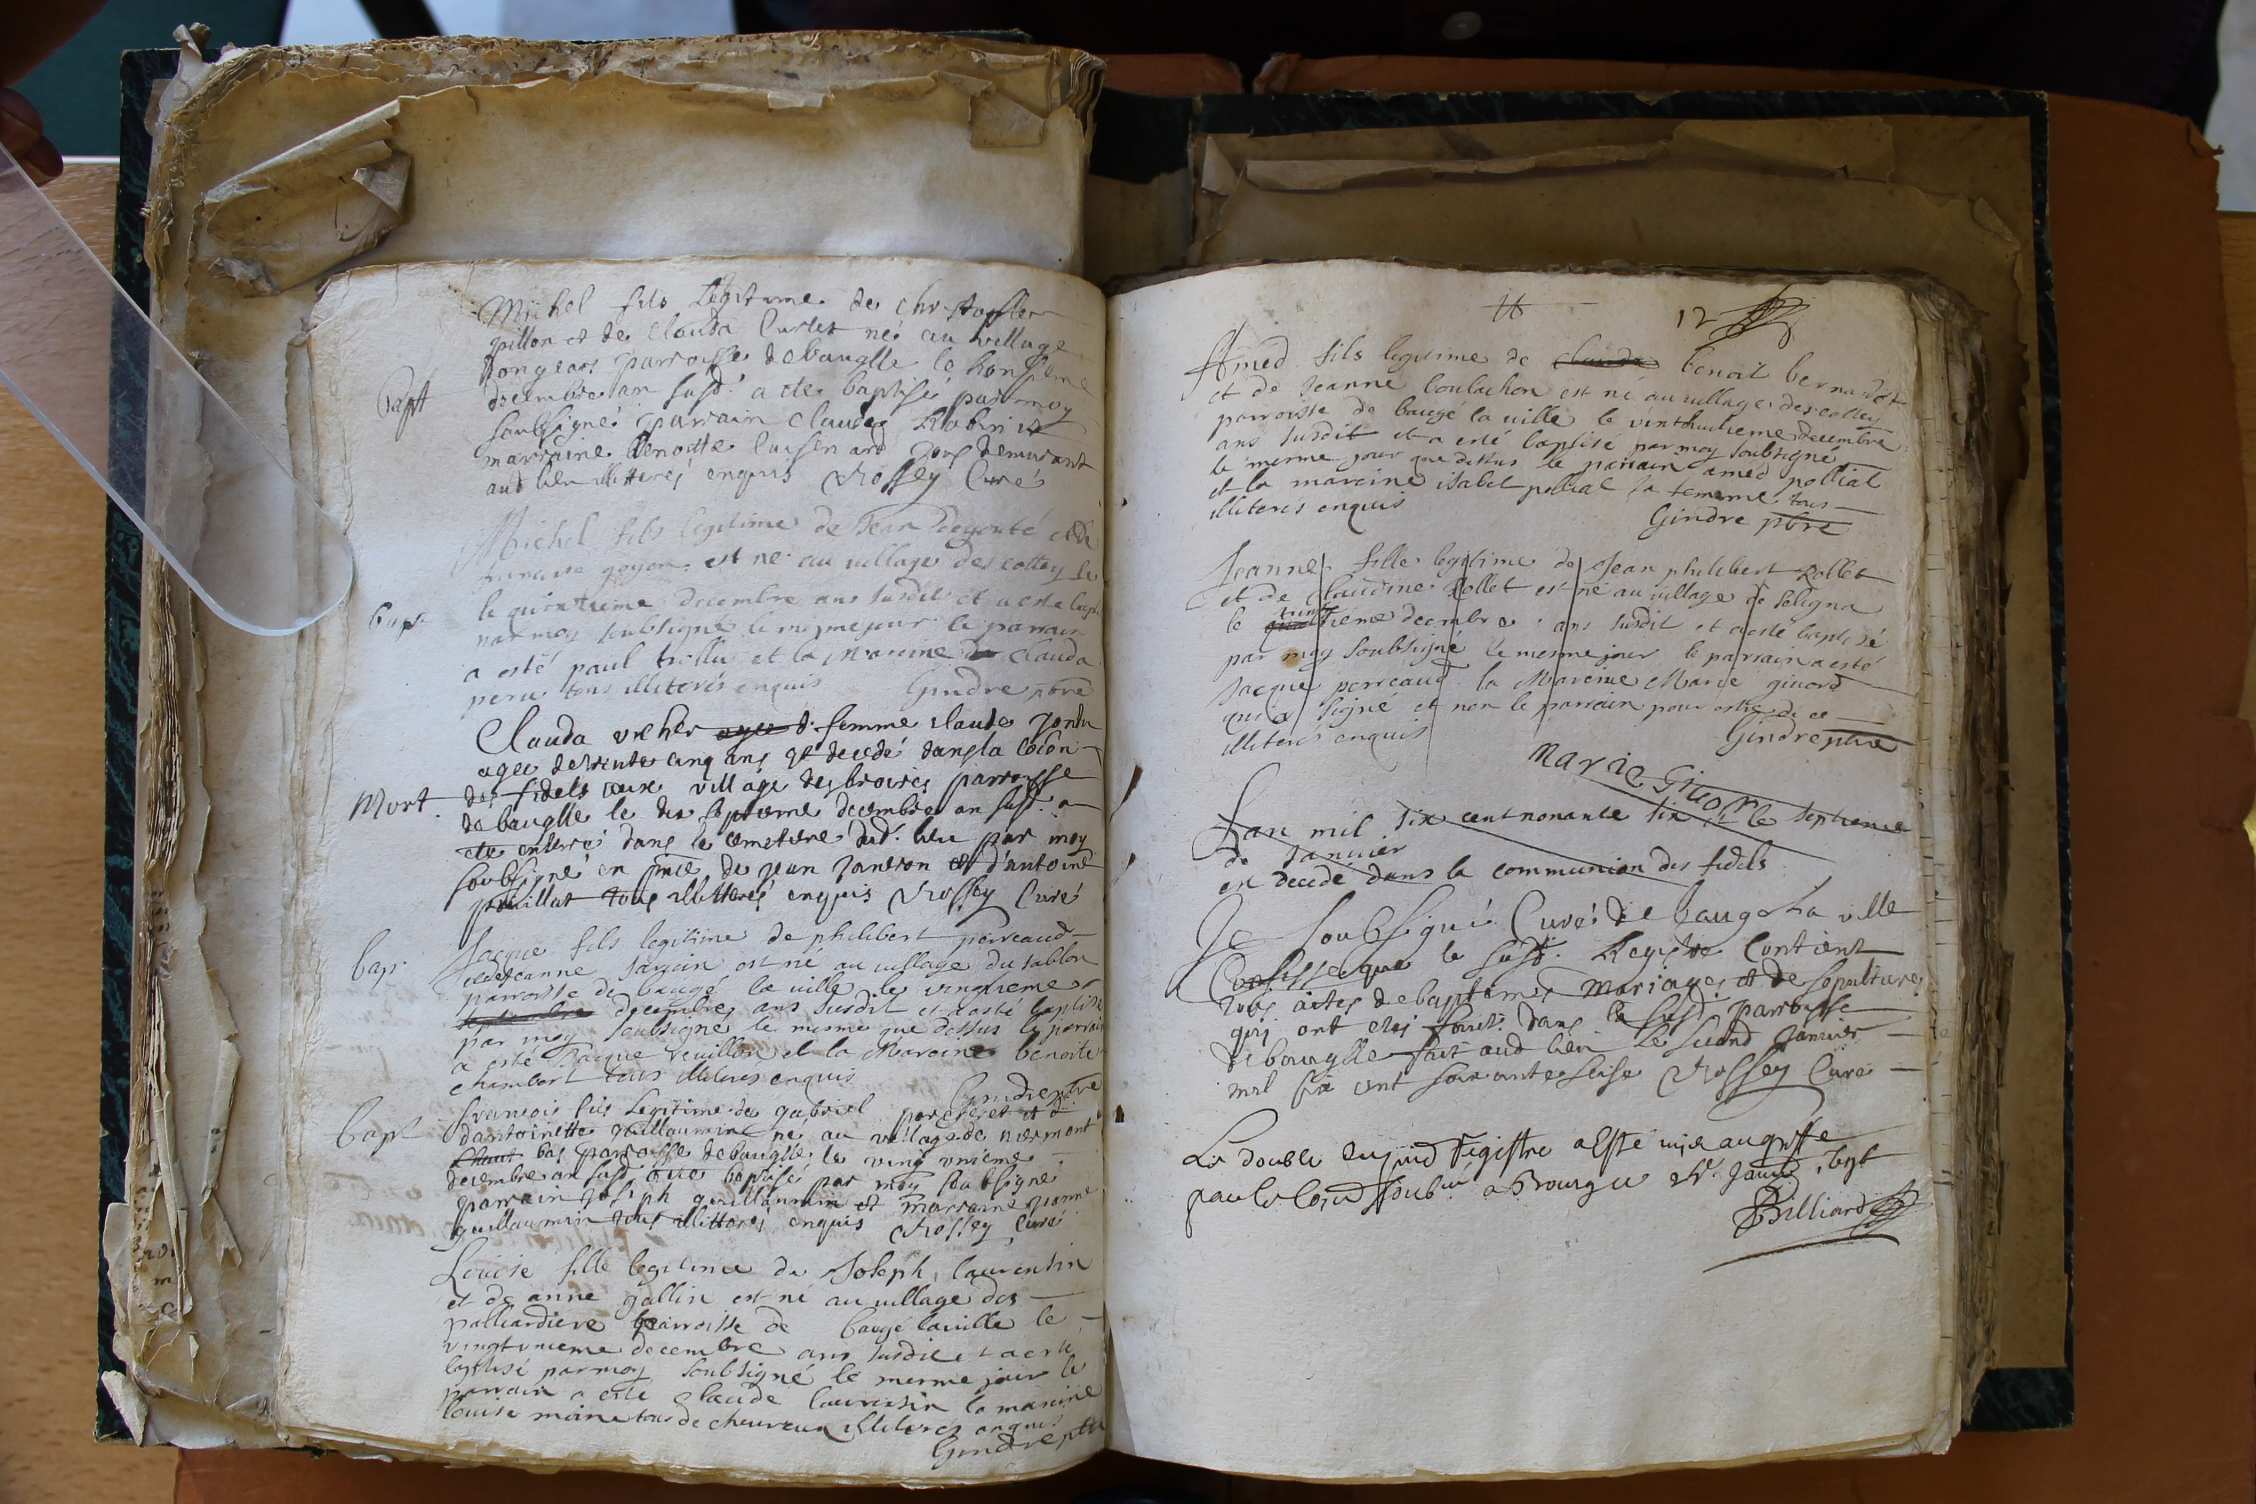 Michel fils Legitime de Christoffle
guillon et de Clauda Curlet né au village
parroisse de baugllé le honsieme
Bapt
decembre an susd. a ete baptisé par moy
soubsigné parrain Claude Robin et
marraine Benoitte Cuisenard tous demurant
aud lieu illitteres enquis Rossey Curé
Michel fils legitime de Jean et de
goyon est né au village des cottey le
Bap.
le quinzieme decembre ans susdit et a esté bapt.
par moy soubsigné le mesme jour le parrain
a esté paul et la Maraine Clauda
peru tous illiterés enquis Gindre pbre
Clauda vucher agee d. femme claude
agee de trente cinq ans est decedé dans la comôn
Mort.
des fidels aux village des broires parroisse
de baugllé le dix septieme decembre an susd. a
ete enterré dans le cemetiere dud. lieu par moy
soubsigné en pnce de jean Janeson et d'antoine
pouillat tous illitterés enquis Rossey Curé
Bap.
Jacque fils legitime de philibert perreaud
et de Jeanne Sarrain est né au village du sablon
parroisse de baugé la ville le vingtieme
septembre decembre ans susdit et a esté baptisé
par moy soubsigné le mesme que dessus le parrain
a esté Jacque Veuillon et la Maraine benoite
chambert tous illiterés enquis
Gindre pbre
Bapt
francois fils Legitime de gabriel et
d'antoinette guillaumin né au village de niermont
Chaut bas parroisse de baugllé le ving unieme
decembre an susd. ete baptisé par moy soubsigné
parrain Joseph guillaumin et marraine Jeanne
guillaumin tous illitterés enquis Rossey Curé
Louise fille legitime de Joseph laurensin
et de anne gallin est né au village des
palliardiere parroisse de baugé la ville le
vingtunieme decembre ans susdit et a esté
baptisé par moy soubsigné le mesme jour le
parrain a esté claude laurensin la maraine
louise moine tous de cheureux illiterés enquis
Gindre pbre
12
Amed fils legitime de claude benoit bernardot
et de Jeanne boulachon est né au village des cottey
parroisse de baugé la ville le vinthuitieme decembre
ans susdit et a esté baptisé par moy soubsigné
le mesme jour que dessus le parrain amed polliat
et la maraine isabel polliat sa fememe tous
illiterés enquis
Gindre pbre
Jeanne fille legitime de Jean philibert Rollet
et de Claudine Rollet est né au village de Seligna
le trentieme decembre ans susdit et a esté baptisé
par moy soubsigné le mesme jour le parrain a esté
Jacque perreaud la Maraine Marie ginord
qui a signé et non le parrain pour estre de ce
illiterés enquis
Gindre pbre
Marie Ginor
Lan mil six cent nonante six et le septieme
de Januier
est decedé dans la communion des fidels
Je soubsigné Curé de baugé La ville
Confesse que le susd. Registre Contient
tous actes de baptemes Mariages et de sepultures
qui ont etes faicts dans la susd. parroisse
de baugllé fait aud lieu Le second Januier
mil six cent soixante seise Rossey Curé
Le double du pnd Registre a Esté mis au greffe
par le Curé soubné a Bourg ce Janv.
Billiard